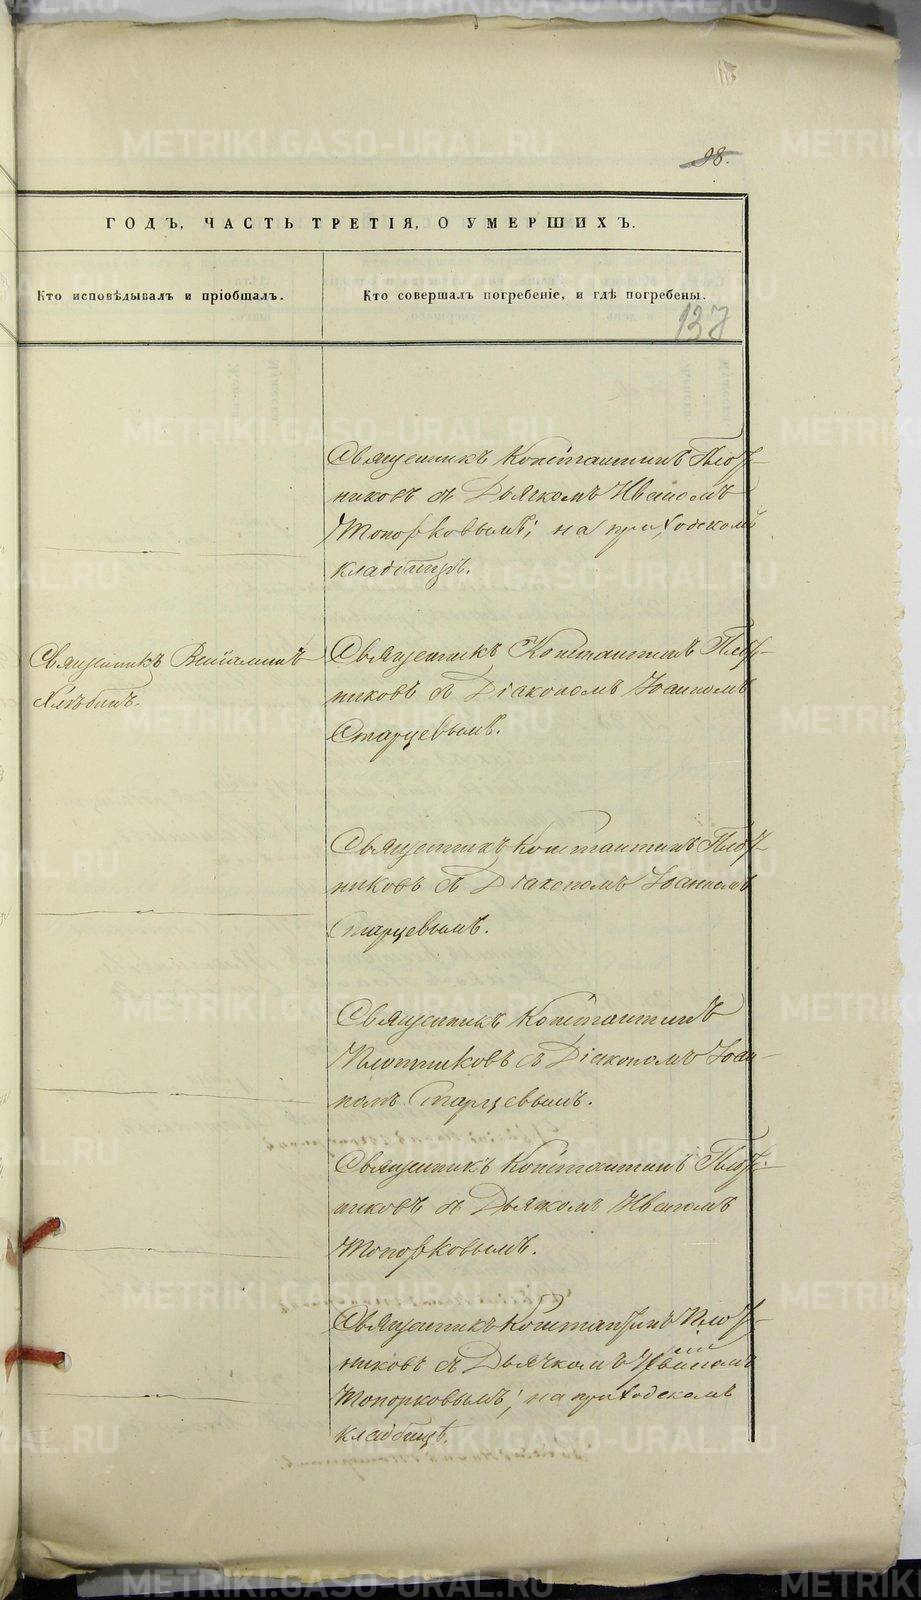 98.
ГОДЪ, ЧАСТЬ ТРЕТІЯ, О УМЕРШИХЪ.
Кто исповѣдывалъ и пріобщалъ.
Кто совершалъ погребеніе, и гдѣ погребены.
137
Священникъ Константинъ Плот-
никовъ съ Дьячкомъ Иваномъ
Топорковымъ; на приходскомъ
кладбищѣ.
Священникъ Веніаминъ
Хлѣбинъ.
Священникъ Константинъ Плот-
никовъ съ Діакономъ Іоанномъ
Старцевымъ.
Священникъ Константинъ Плот-
никовъ съ Діакономъ Іоанномъ
Старцевымъ.
Священникъ Константинъ
Плотниковъ съ Діакономъ Іоан-
номъ Старцевымъ.
Священникъ Константинъ Плот-
никовъ съ Дьячкомъ Иваномъ
Топорковымъ.
Священникъ Константинъ Плот-
никовъ съ Дьячкомъ Иваномъ
Топорковымъ; на приходскомъ
кладбищѣ.
METRIKI.GASO-URAL.RU